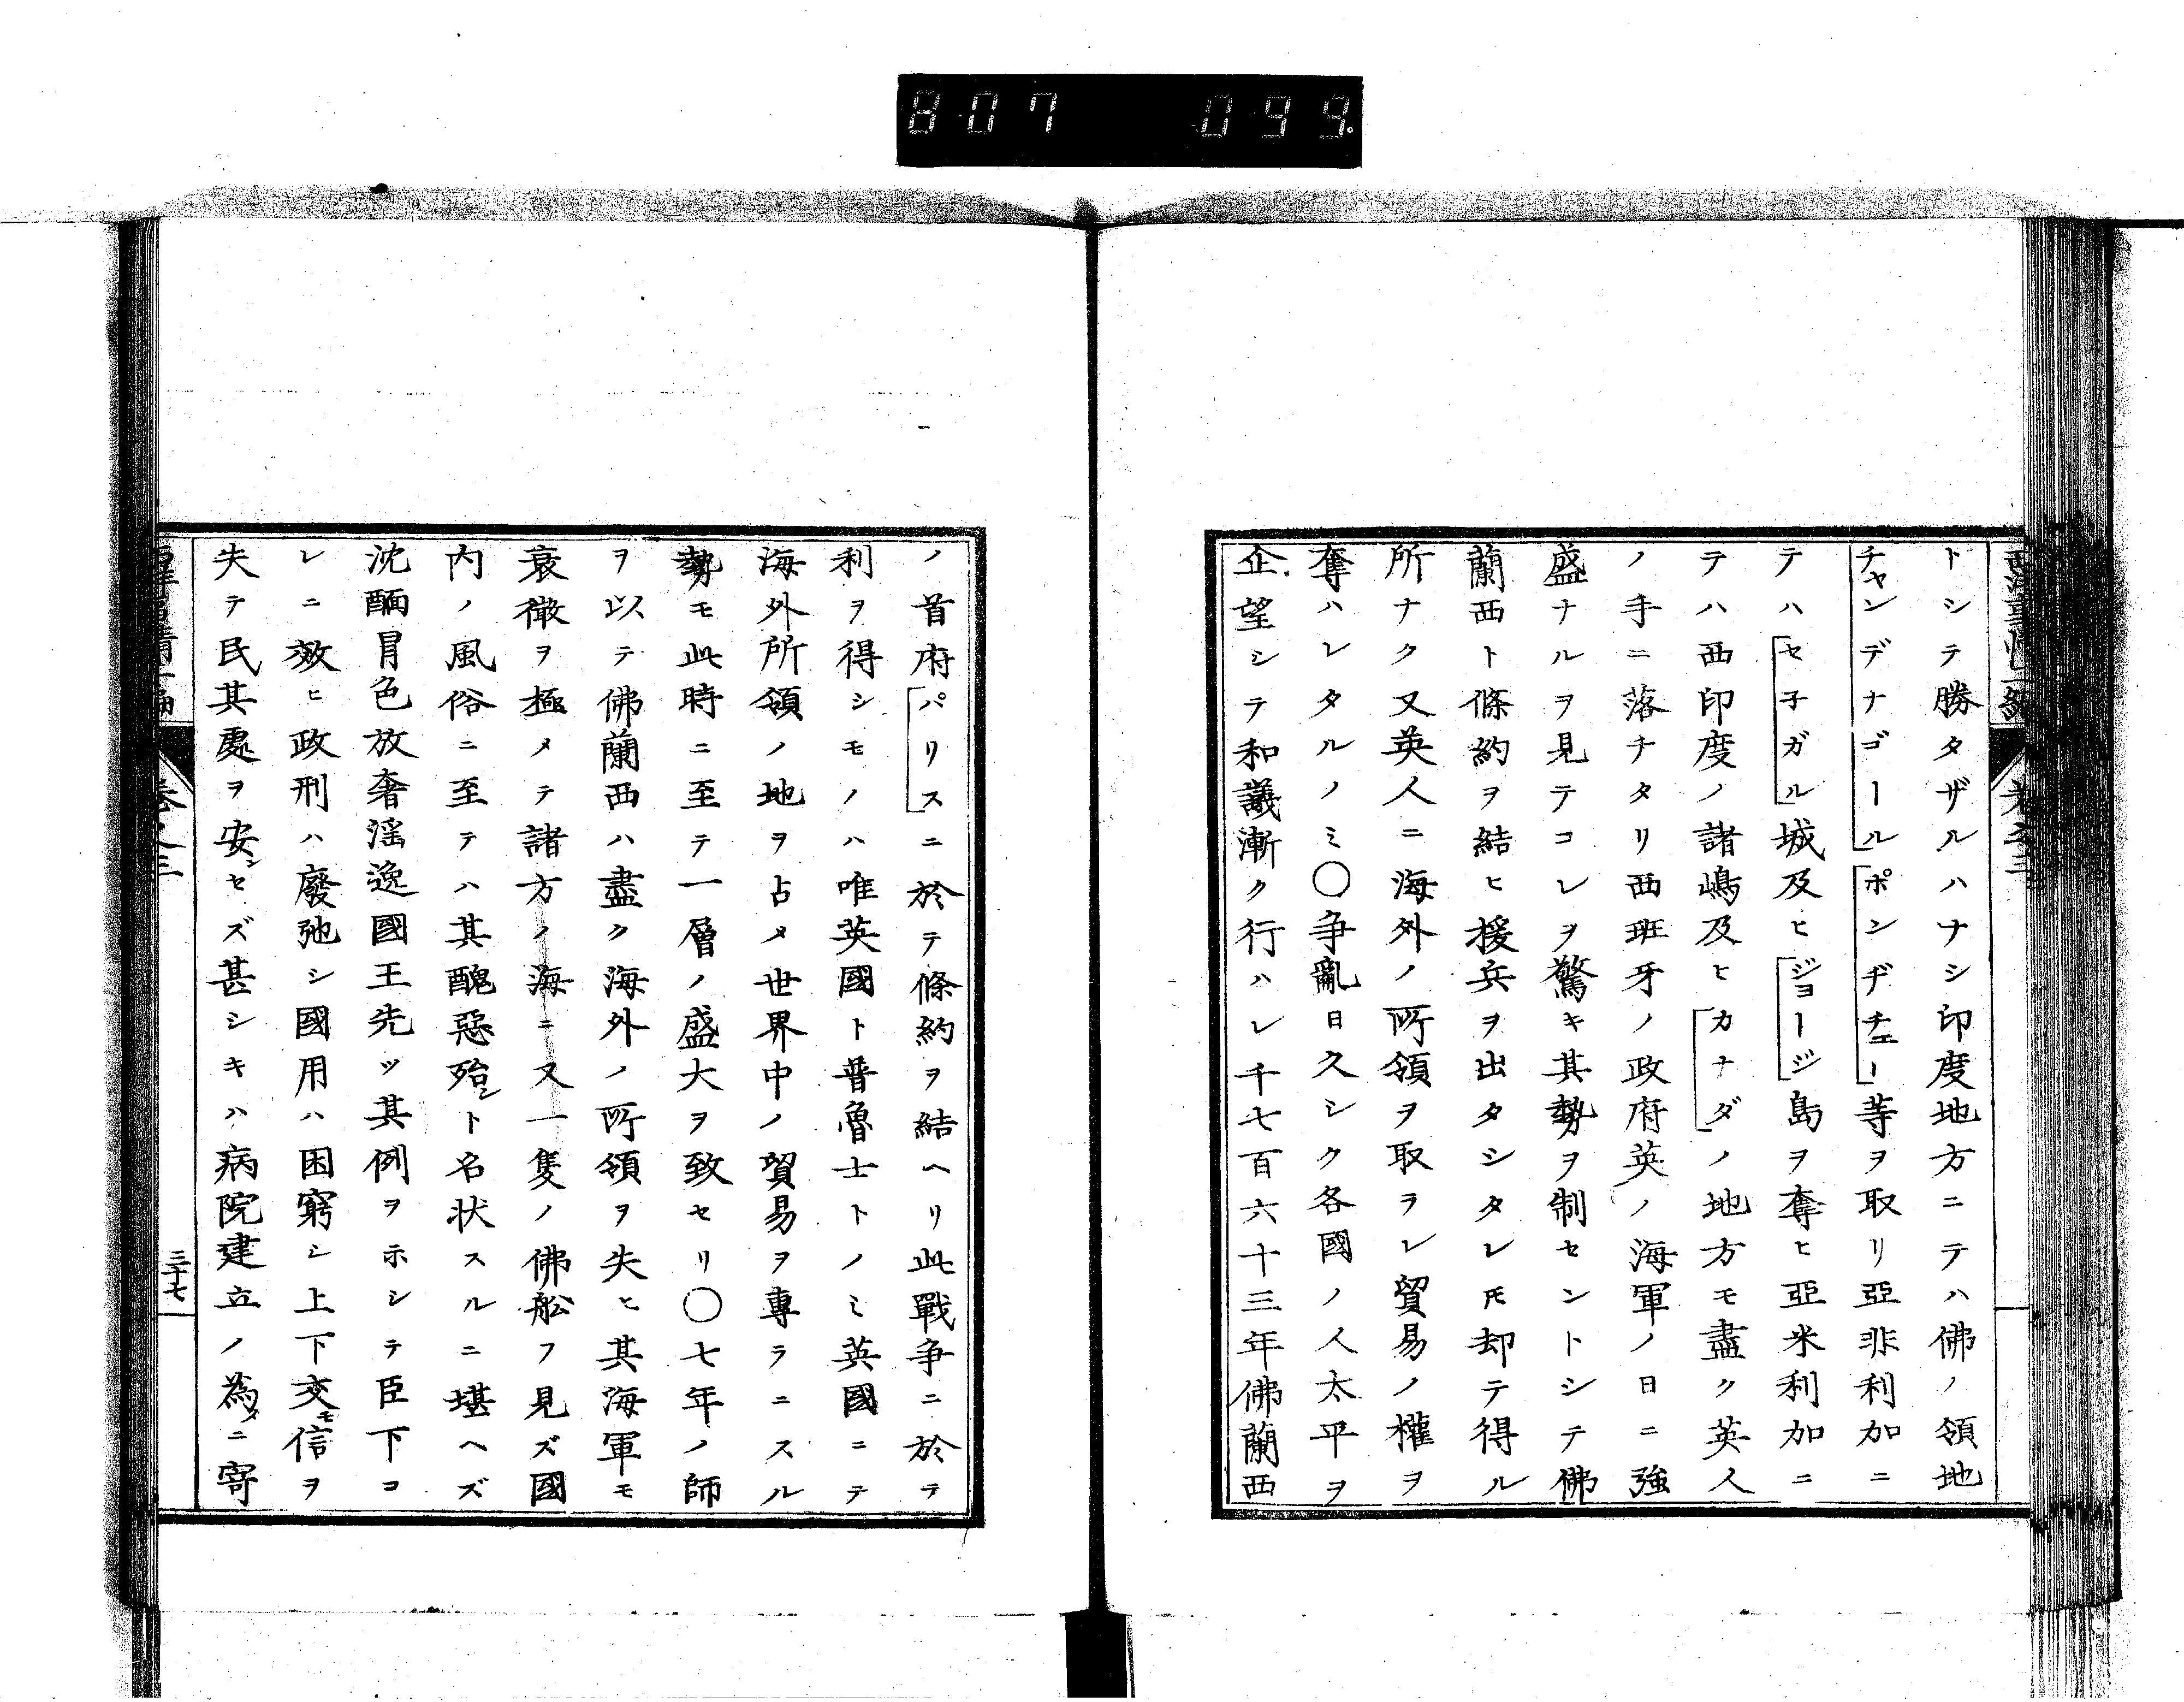 807 099.
トシテ勝タザルハナシ印度地方ニテハ佛ノ領地
チャンデナゴール ポンヂチェー等ヲ取リ亞非利加ニ
テハセ子ガル城及ヒジョージ島ヲ奪ヒ亞米利加ニ
テハ西印度ノ諸嶋及ヒカナダノ地方モ盡ク英人
ノ手ニ落チタリ西班牙ノ政府英ノ海軍ノ日ニ強
盛ナルヲ見テコレヲ驚キ其勢ヲ制セントシテ佛
蘭西ト條約ヲ結ヒ援兵ヲ出タシタレ𪜈却テ得ル
所ナク又英人ニ海外ノ所領ヲ取ラレ貿易ノ權ヲ
奪ハレタルノミ〇爭亂日久シク各國ノ人太平ヲ
企望シテ和議漸ク行ハレ千七百六十三年佛蘭西
ノ首府パリスニ於テ條約ヲ結ヘリ此戰爭ニ於テ
利ヲ得シモノハ唯英國ト普魯士トノミ英國ニテ
海外所領ノ地ヲ占メ世界中ノ貿易ヲ專ラニスル
勢モ此時ニ至テ一層ノ盛大ヲ致セリ〇七年ノ師
ヲ以テ佛蘭西ハ盡ク海外ノ所領ヲ失ヒ其海軍モ
衰徵ヲ極メテ諸方ノ海ニ又一隻ノ佛舩ヲ見ズ國
内ノ風俗ニ至テハ其醜惡殆ント名状スルニ堪ヘズ
沈酾冐色放奢淫逸國王先ツ其例ヲ示シテ臣下コ
レニ效ヒ政刑ハ廢弛シ國用ハ困窮シ上下交モ信ヲ
失テ民其處ヲ安ンセズ甚シキハ病院建立ノ為メニ寄
三十七